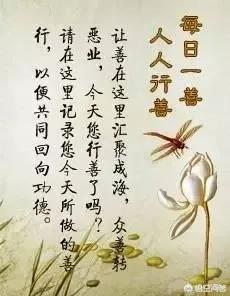 每日一善
人人行善
让善在这里汇聚成海，众善转
恶业，今天您行善了吗？
请在这里记录您今天所做的善
行，以便共同回向功德。
悟空问答